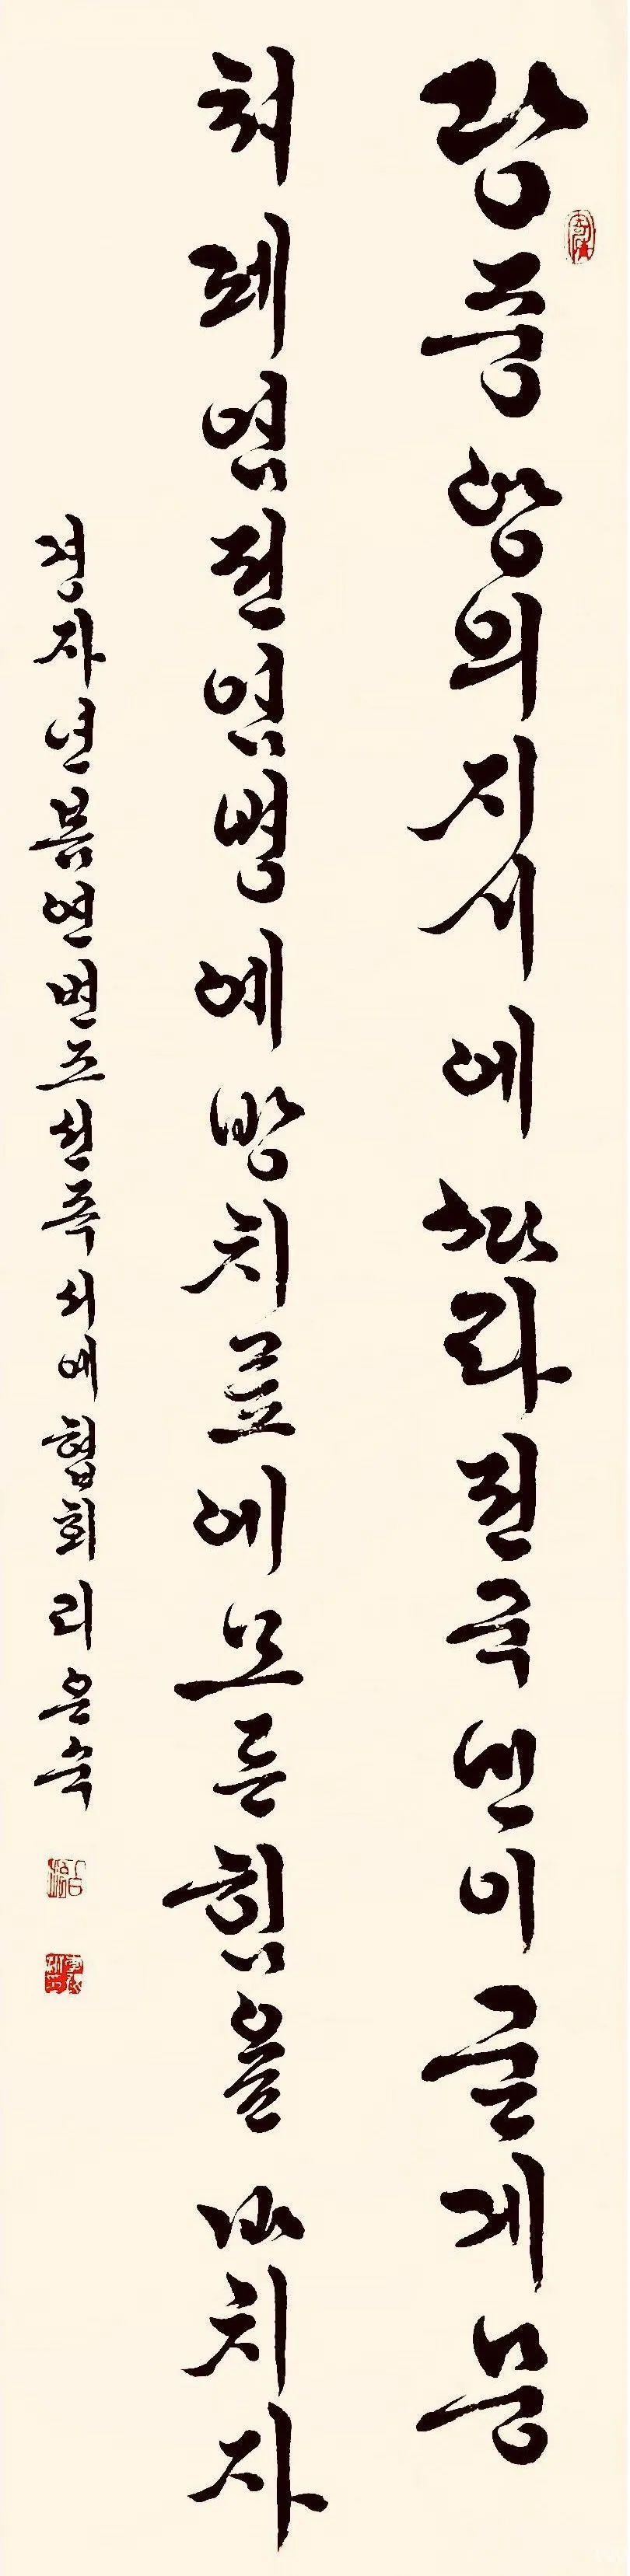 당중앙의지시에따라전국민이굳게뭉
쳐페염전염병예방치료에모든힘을바치자
경자년봄연변조선족서예협회리은숙